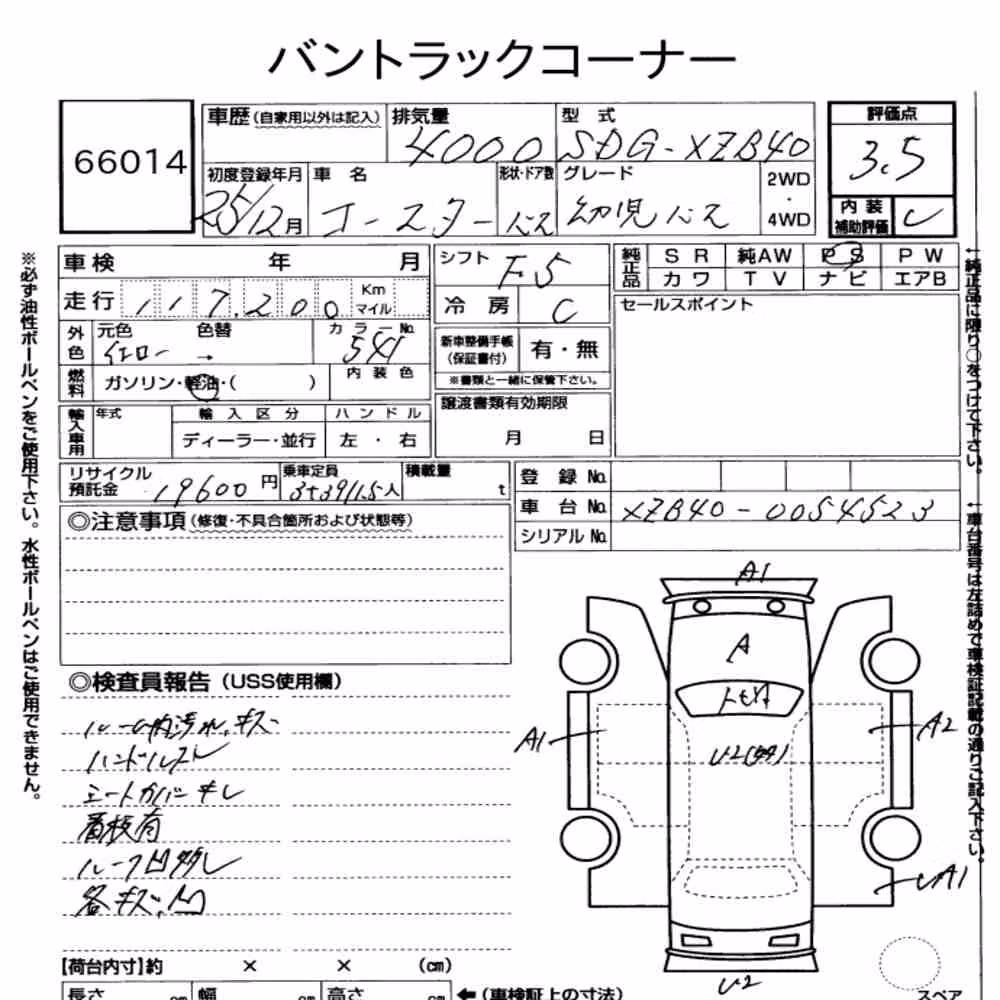 バントラックコーナー
66014
車歴(自家用以外は記入) 排気量 型式 評価点
4000 SDG-XZB40 3.5
初度登録年月 車名 形状・ドア数 グレード 2WD・4WD 内装補助評価 C
25/12月 コースター バス 幼児バス
車検 年 月 シフト F5 純正品 SR 純AW PS PW
カワ TV ナビ エアB
走行 117,200 Km マイル 冷房 C セールスポイント
外色 元色 色替 カラーNo.
イエロー → 541
新車整備手帳(保証書付) 有・無
※書類と一緒に保管下さい。
燃料 ガソリン・軽油・( ) 内装色
譲渡書類有効期限
月 日
輸入車用 年式 輸入区分 ハンドル
ディーラー・並行 左・右
リサイクル預託金 19600円 乗車定員 3+39/1.5人 積載量 t
登録No.
車台No. XZB40-0054523
シリアルNo.
◎注意事項(修復・不具合箇所および状態等)
◎検査員報告(USS使用欄)
ルーム内汚れ、キズ
ハンドルスレ
シートカバーキレ
看板有
ルーフ凹多し
各キズ、凹
A1
A
A1
A2
U2
【荷台内寸】約 × × (cm)
長さ cm 幅 cm 高さ cm ←(車検証上の寸法)
スペア
※必ず油性ボールペンをご使用下さい。水性ボールペンはご使用できません。
←純正品に限り○をつけて下さい。
←車台番号は左詰めで車検証記載の通りご記入下さい。